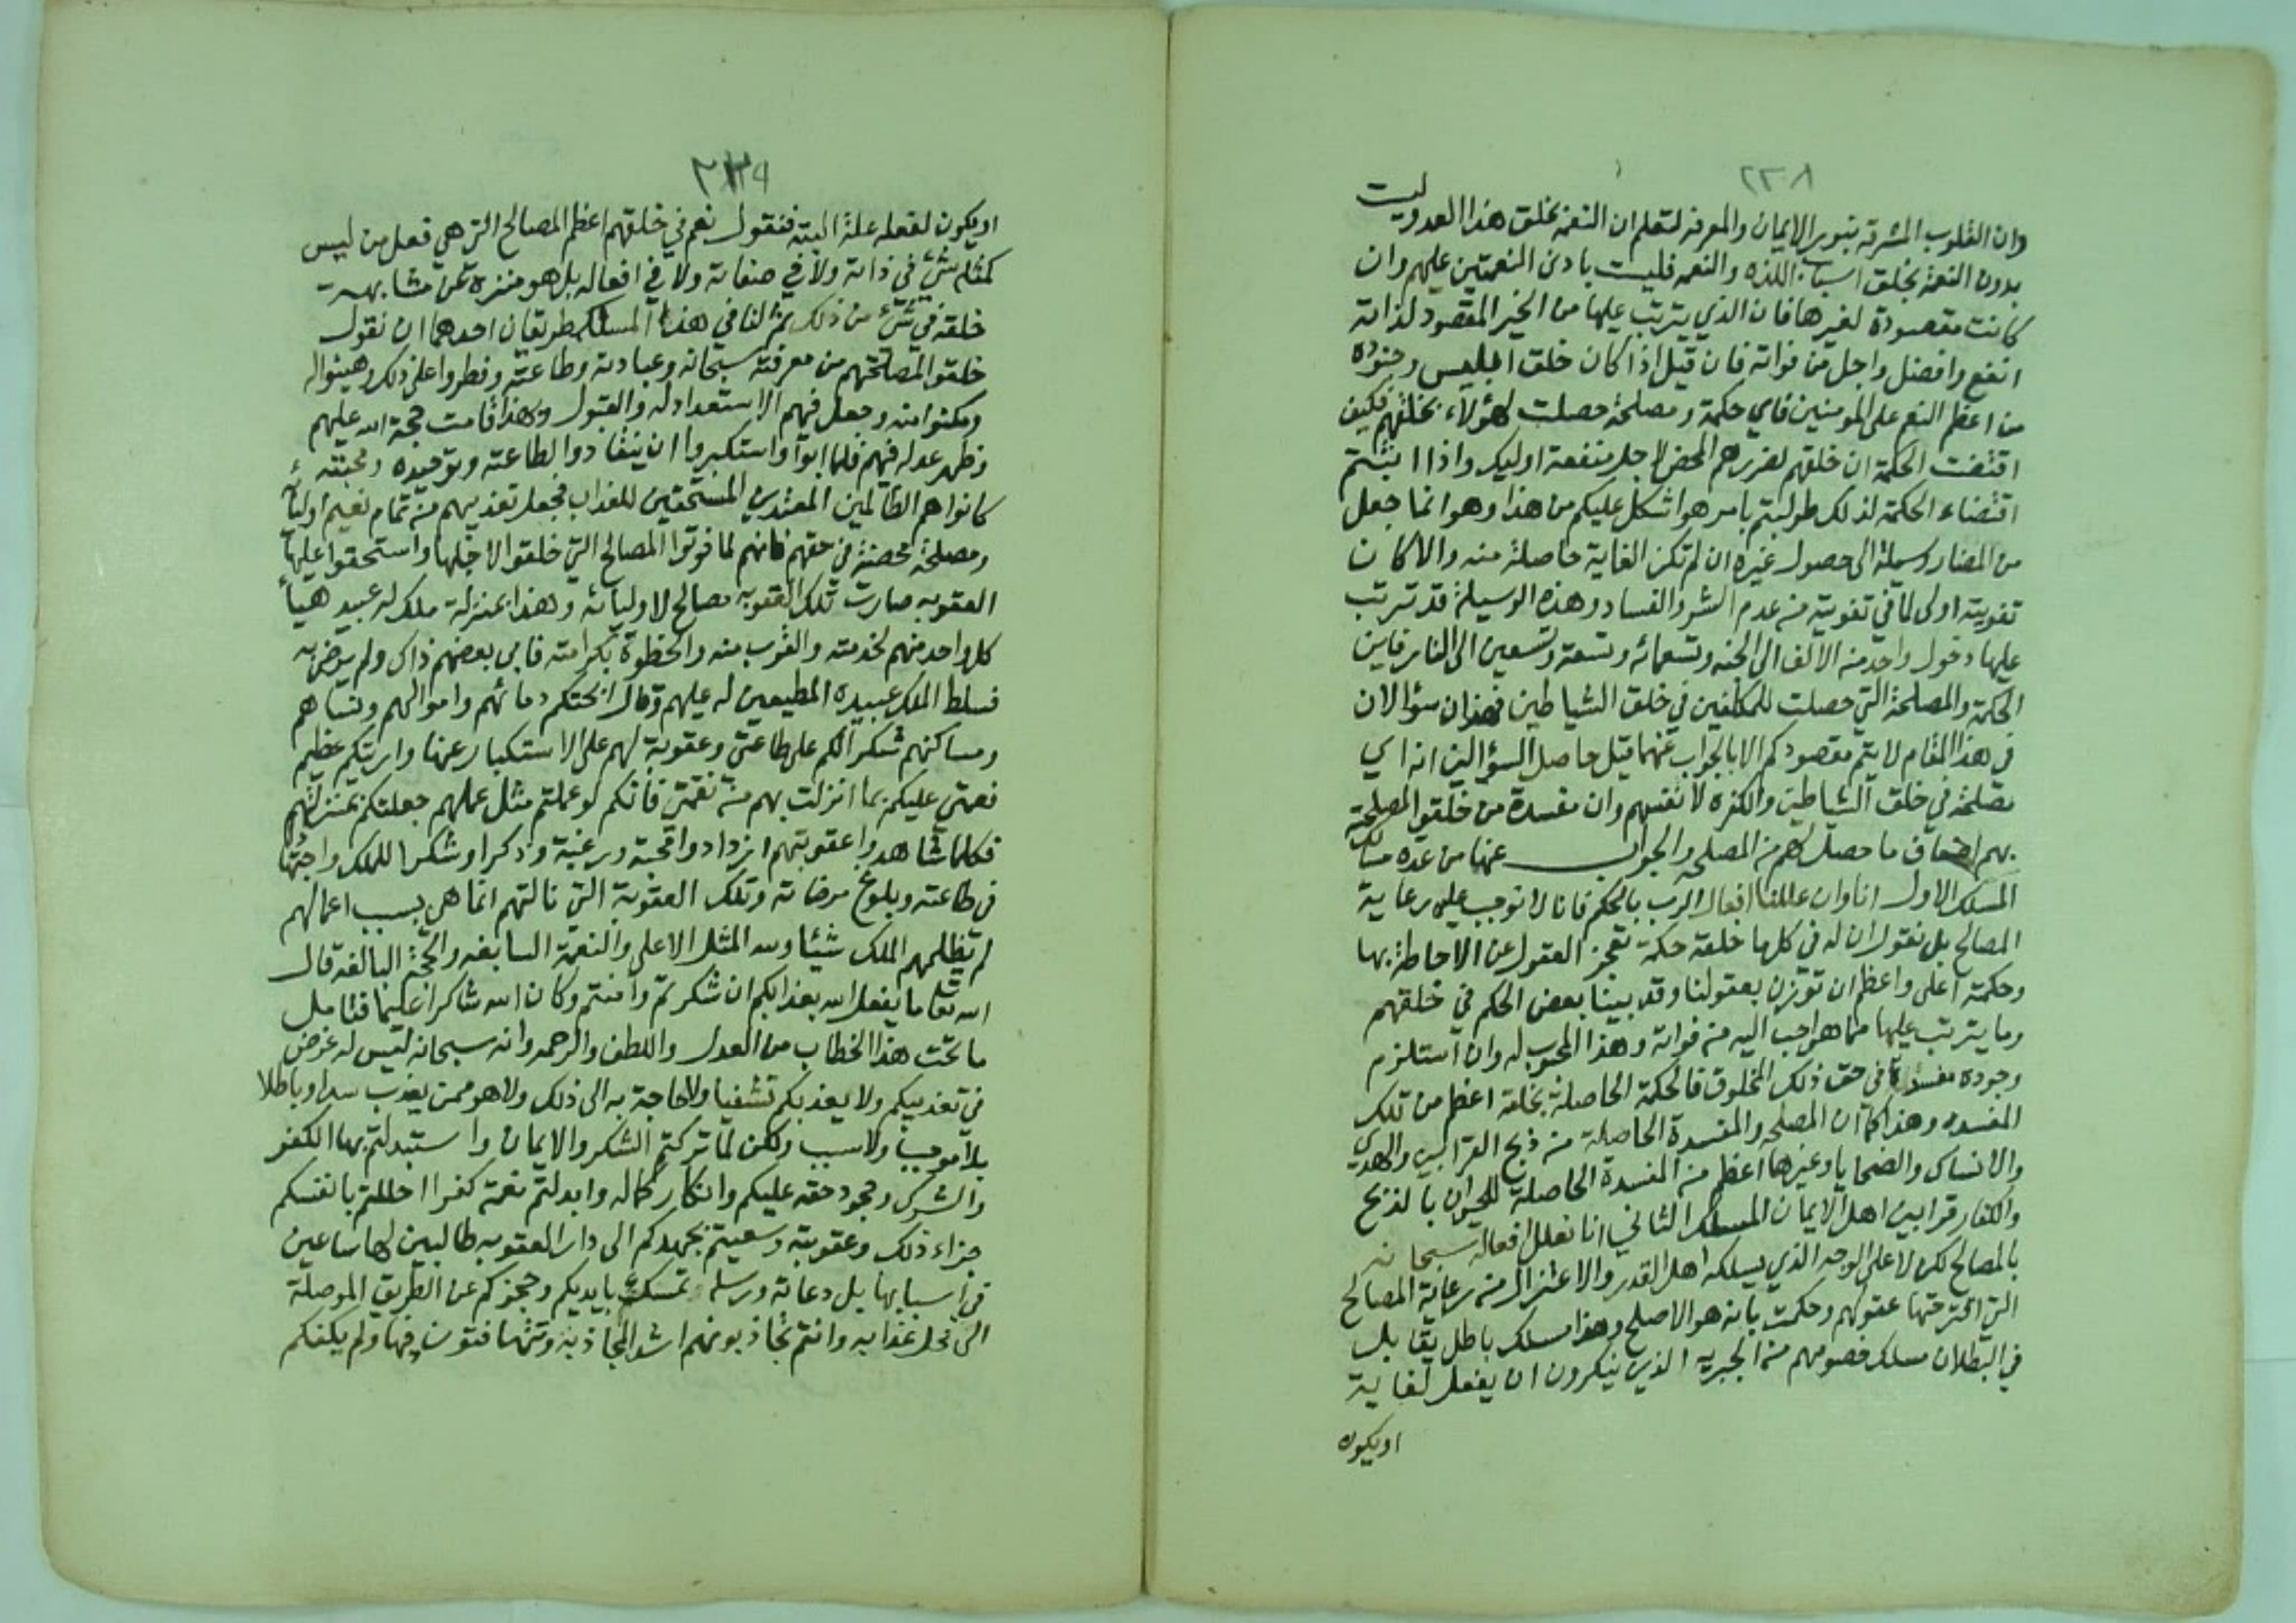 ٢٣٨
وان القلوب المشرقه بنور الايمان والمعرفه لتعلم ان النعمة بخلق هذا العدو ليست
بدون النعمة بخلق اسباب اللذه والنعمه فليست بادنى النعمتين عليهم وان
كانت مقصودة لغيرها فان الذي يترتب عليها من الخير المقصود لذاته
انفع وافضل واجل من فواته فان قيل اذا كان خلق ابليس وجنوده
من اعظم النعم على المومنين فاي حكمة ومصلحة حصلت لهؤلاء بخلقهم فكيف
اقتضت الحكمة ان خلقهم لضررهم المحض لاجل منفعة اوليك واذا اثبتم
اقتضاء الحكمة لذلك طولبتم بامر هو اشكل عليكم من هذا وهو انما جعل
من المضار وسيلة الى حصول غيره ان لم تكن الغاية حاصلة منه والا كان
تفويته اولى لما في تفويته من عدم الشر والفساد وهذه الوسيلة قد ترتب
عليها دخول واحد من الالف الى الجنه وتسعمائه وتسعة وتسعين الى النار فاين
الحكمة والمصلحة التي حصلت للمكلفين في خلق الشياطين فهذان سؤالان
في هذا المقام لا يتم مقصودكم الا بالجواب عنهما قيل حاصل السؤالين انه اي
مصلحة في خلق الشياطين والكفره لانفسهم وان مفسدة من خلقو المصلحة
بهم اضعاف ما حصل لهم من المصلحه والجواب عنها من عدة مسالك
المسلك الاول انا وان عللنا افعال الرب بالحكم فانا لا نوجب عليه رعاية
المصالح بل نقول ان له في كلها خلقه حكمة تعجز العقول عن الاحاطة بها
وحكمته اعلى واعظم ان توزن بعقولنا وقد بينا بعض الحكم في خلقهم
وما يترتب عليها مما هو احب اليه من فواته وهذا المحبوب له وان استلزم
وجوده مفسدة في حق ذلك المخلوق فالحكمة الحاصلة بخلقه اعظم من تلك
المفسده وهذا كما ان المصلحه والمفسدة الحاصلة من ذبح القرابين والهدي
والانساك والضحايا وغيرها اعظم من المفسدة الحاصلة للحيوان بالذبح
والكفار قرابين اهل الايمان المسلك الثاني انا نعلل افعاله سبحانه
بالمصالح لكن لا على الوجه الذي يسلكه اهل القدر والاعتزال من رعاية المصالح
التي اقترحتها عقولهم وحكمت بانه هو الاصلح وهذا مسلك باطل يقابل
في البطلان مسلك خصومهم من الجبريه الذين ينكرون ان يفعل لغاية
او يكون
٢٣٩
او يكون لفعله علة البتة فنقول نعم في خلقهم اعظم المصالح التي هي فعل من ليس
كمثله شيء في ذاته ولا في صفاته ولا في افعاله بل هو منزه عن مشابهت
خلقه في شيء من ذلك ثم لنا في هذا المسلك طريقان احدهما ان نقول
خلقوا لمصلحتهم من معرفته سبحانه وعبادته وطاعته وفطروا على ذلك وهيئوا له
ومكنوا منه وجعل فيهم الاستعداد له والقبول وبهذا قامت حجة الله عليهم
وظهر عدله فيهم فلما ابوا واستكبروا ان ينقادوا لطاعته وتوحيده ومحبته
كانوا هم الظالمين المعتدين المستحقين للعذاب فجعل تعذيبهم من تمام نعيم اوليائه
ومصلحة محضة في حقهم فانهم لما فوتوا المصالح التي خلقوا لاجلها واستحقوا عليها
العقوبه صارت تلك العقوبه مصالح لاوليائه وهذا بمنزلة ملك له عبيد هيأ
كل واحد منهم لخدمته والقرب منه والحظوة بكرامته فابى بعضهم ذاك ولم يرض به
فسلط الملك عبيده المطيعين له عليهم وقال ابحتكم دمائهم واموالهم ونساهم
ومساكنهم شكرا لكم على طاعتي وعقوبة لهم على الاستكبار عنها واريتكم عظيم
نعمتي عليكم بما انزلت بهم من نقمتي فانكم لو عملتم مثل عملهم جعلتكم بمنزلتهم
فكلما شاهدوا عقوبتهم ازدادوا محبة ورغبة وذكرا وشكرا للملك واجتهادا
في طاعته وبلوغ مرضاته وتلك العقوبة التي نالتهم انما هي بسبب اعمالهم
لم يظلمهم الملك شيئا ولله المثل الاعلى والنعمة السابغه والحجة البالغه قال
الله تعا ما يفعل الله بعذابكم ان شكرتم وآمنتم وكان الله شاكرا عليما فتامل
ما تحت هذا الخطاب من العدل واللطف والرحمه وانه سبحانه ليس له غرض
في تعذيبكم ولا يعذبكم تشفيا ولا حاجة به الى ذلك ولا هو ممن يعذب سدا وباطلا
بلا موجب ولا سبب ولكن لما تركتم الشكر والايمان واستبدلتم بها الكفر
والشرك وجحود حقه عليكم وانكار كماله وابدلتم نعمة كفرا احللتم بانفسكم
جزاء ذلك وعقوبته وسعيتم بجهدكم الى دار العقوبه طالبين لها ساعين
في اسبابها بل دعاته ورسله تمسك بايديكم وحجزكم عن الطريق الموصلة
الى محل عذابه وانتم تجاذبونهم اشد المجاذبة وتتهافتون فيها ولم يكفكم